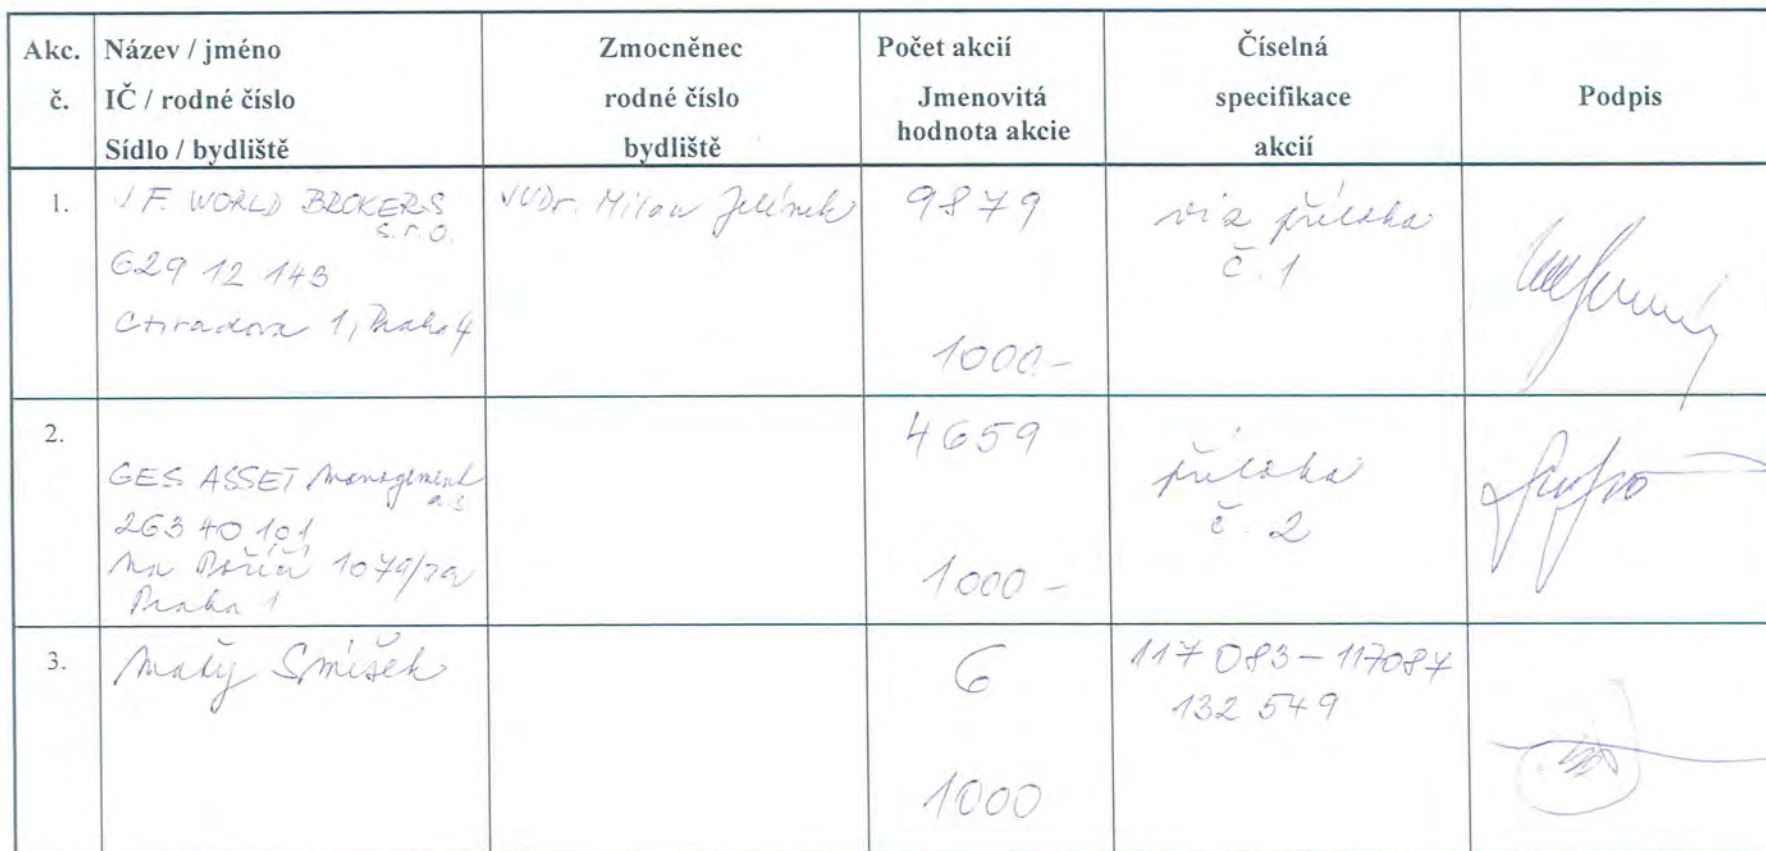 Akc. č.
Název / jméno
IČ / rodné číslo
Sídlo / bydliště
Zmocněnec
rodné číslo
bydliště
Počet akcií
Jmenovitá
hodnota akcie
Číselná
specifikace
akcií
Podpis
1.
J F. WORLD BROKERS
s.r.o.
629 12 143
Ctiradova 1, Praha 4
JUDr. Milan Jelínek
9879
1000.-
viz příloha
č. 1
2.
GES ASSET Management
a.s
263 40 101
Na Poříčí 1079/
Praha 1
4659
1000 -
příloha
č. 2
3.
Matěj Smíšek
6
1000
117 083 - 117087
132 549